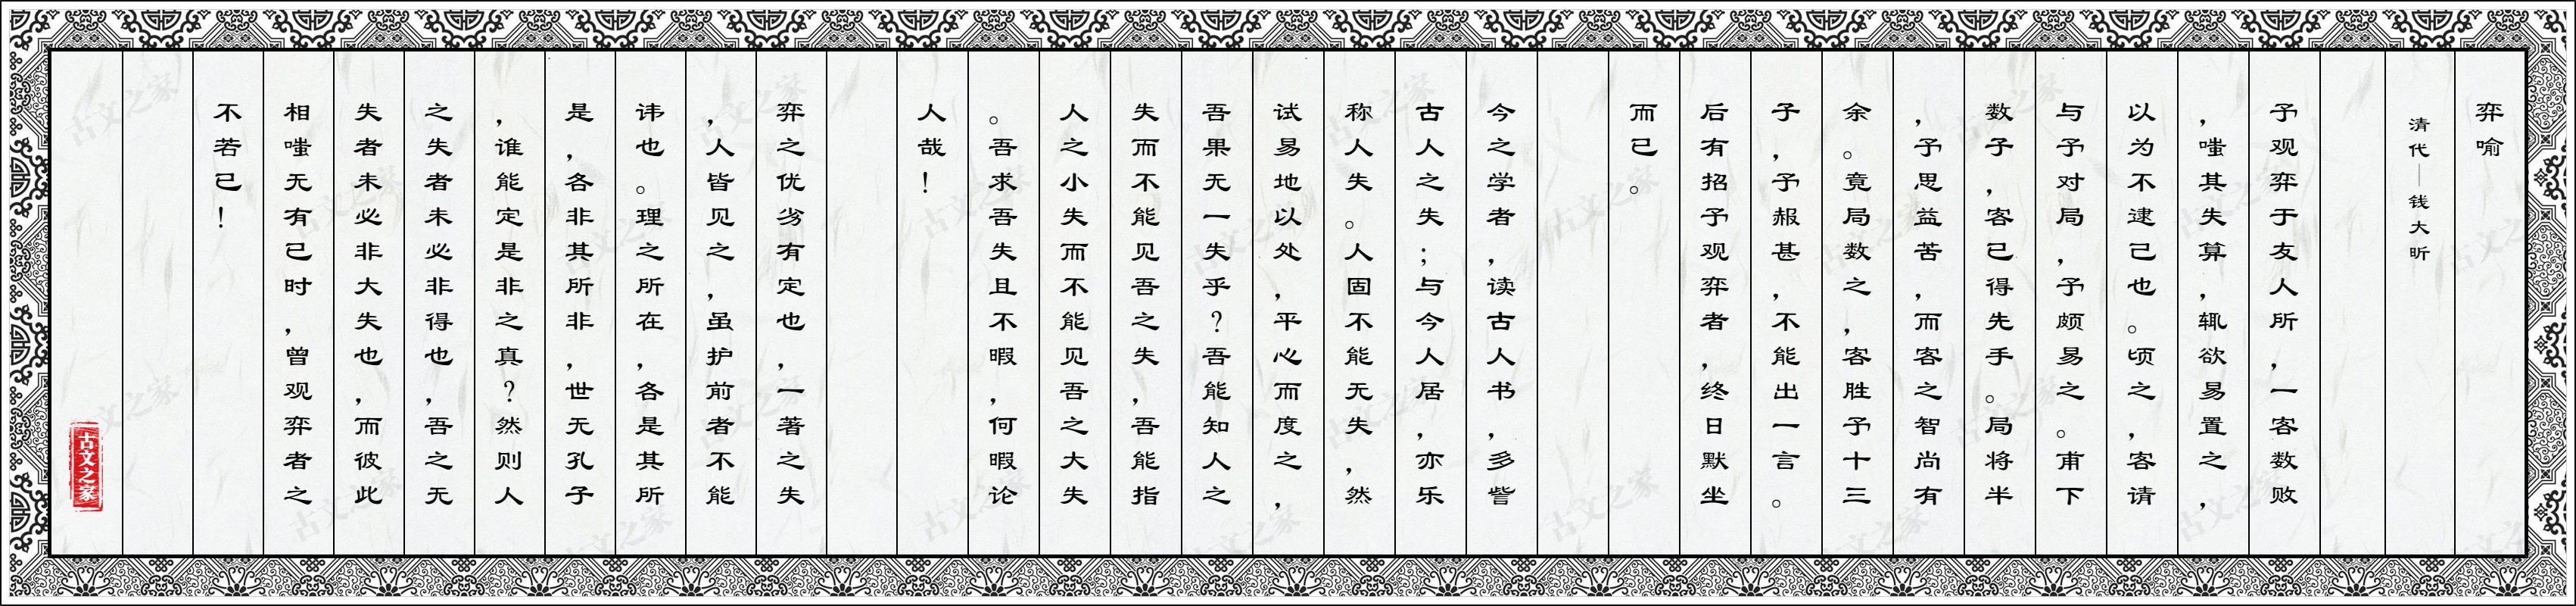 弈喻
清代｜钱大昕
予观弈于友人所，一客数败
，嗤其失算，辄欲易置之，
以为不逮己也。顷之，客请
与予对局，予颇易之。甫下
数子，客已得先手。局将半
，予思益苦，而客之智尚有
余。竟局数之，客胜予十三
子，予赧甚，不能出一言。
后有招予观弈者，终日默坐
而已。
今之学者，读古人书，多訾
古人之失；与今人居，亦乐
称人失。人固不能无失，然
试易地以处，平心而度之，
吾果无一失乎？吾能知人之
失而不能见吾之失，吾能指
人之小失而不能见吾之大失
。吾求吾失且不暇，何暇论
人哉！
弈之优劣有定也，一著之失
，人皆见之，虽护前者不能
讳也。理之所在，各是其所
是，各非其所非，世无孔子
，谁能定是非之真？然则人
之失者未必非得也，吾之无
失者未必非大失也，而彼此
相嗤无有已时，曾观弈者之
不若已！
古文之家